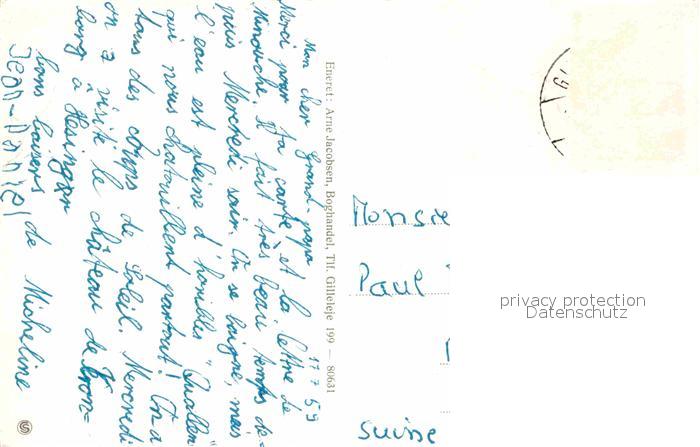 17.7.59
Mon cher Grand-papa
Merci pour ta carte et la lettre de
Minouche. Il fait très beau temps de-
puis Mercredi soir. On se baigne, mais
l'eau est pleine d'horribles "Quallen"
qui nous chatouillent partout! On a
tous des coups de Soleil. Mercredi
on a visité le château de Kron-
borg à Helsingør
bons baisers de Micheline
Jean-Daniel
Eneret: Arne Jacobsen, Boghandel, Tlf. Gilleleje 199 — 80631
Monsie
Paul
suisse
privacy protection
Datenschutz